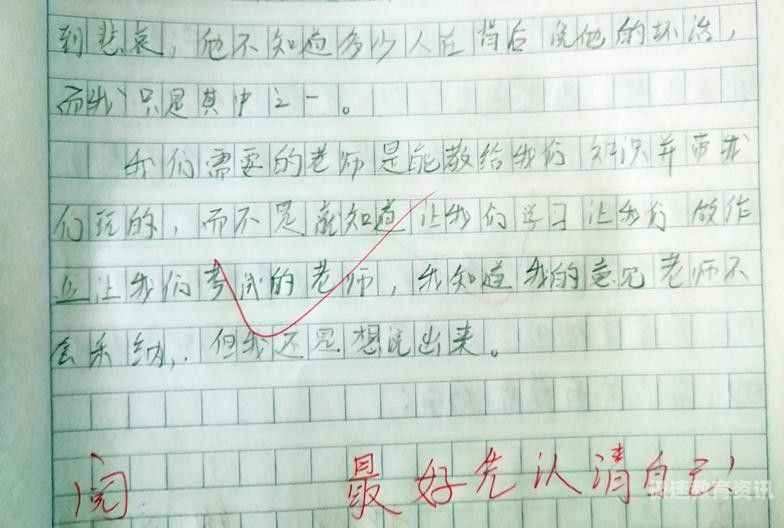 到悲哀，他不知道多少人在背后说他的坏话，
而我只是其中之一。
我们需要的老师是能教给我们知识并带我
们玩的，而不是就知道让我们学习让我们做作
业让我们考试的老师，我知道我的意见老师不
会采纳，但我还是想说出来。
阅 最好先认清自己！
极速教育资讯